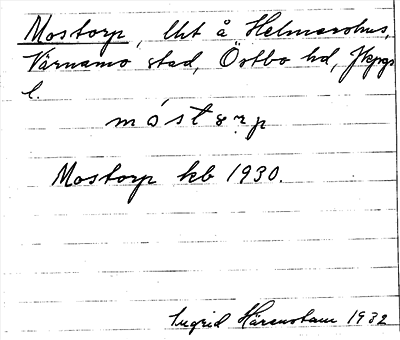 Mostorp, lht å Helmershus,
Värnamo stad, Östbo hd, Jkpgs
l.
móstɘrp
Mostorp kb 1930.
Ingrid Härenstam 1932